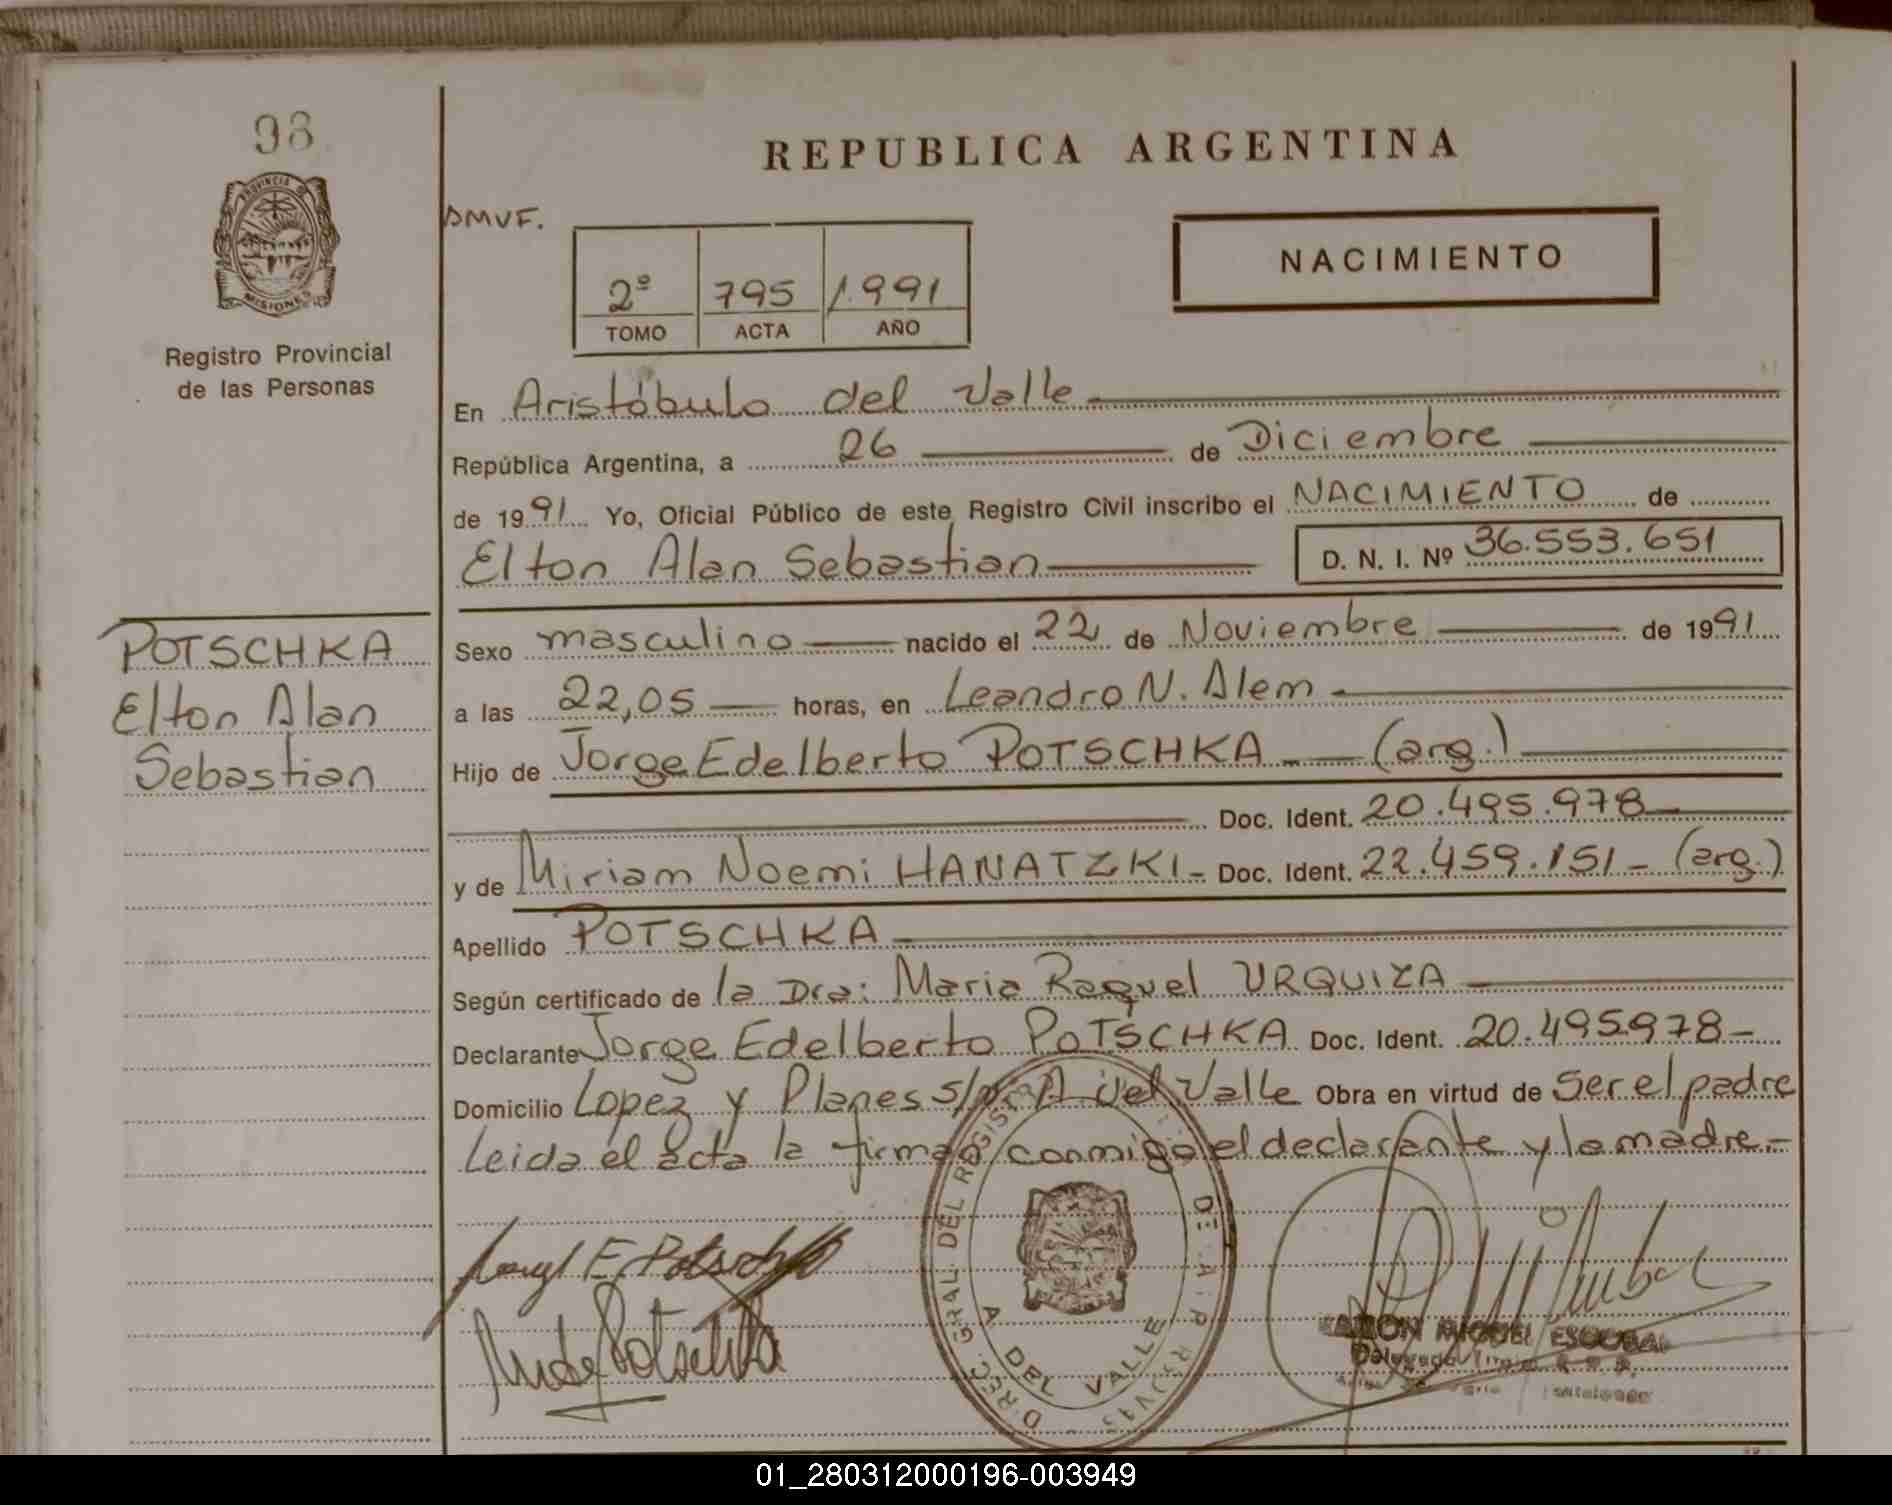 98
PROVINCIA DE
MISIONES
Registro Provincial
de las Personas
POTSCHKA
Elton Alan
Sebastian
REPUBLICA ARGENTINA
DMVF.
2º 795 1.991
TOMO ACTA AÑO
NACIMIENTO
En Aristóbulo del Valle
República Argentina, a 26 de Diciembre
de 1991 Yo, Oficial Público de este Registro Civil inscribo el NACIMIENTO de
Elton Alan Sebastian D. N. I. Nº 36.553.651
Sexo masculino nacido el 22 de Noviembre de 1991
a las 22,05 horas, en Leandro N. Alem
Hijo de Jorge Edelberto POTSCHKA (arg.)
Doc. Ident. 20.495.978
y de Miriam Noemi HANATZKI - Doc. Ident. 22.459.151 - (arg.)
Apellido POTSCHKA
Según certificado de la Dra: Maria Raquel URQUIZA
Declarante Jorge Edelberto POTSCHKA Doc. Ident. 20.495978-
Domicilio Lopez y Planes s/nº A del Valle Obra en virtud de ser el padre
Leida el acta la firman conmigo el declarante y la madre.-
E. Potschka
Potschka
DIREC. GRAL. DEL REGISTRO
A DEL VALLE
RAMON MIGUEL ESCOBAR
01_280312000196-003949